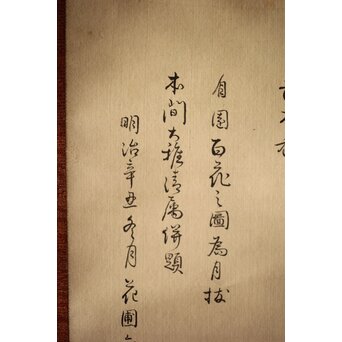 自園百花之圖為月坡
本間大雅清屬併題
明治辛丑冬月花圃